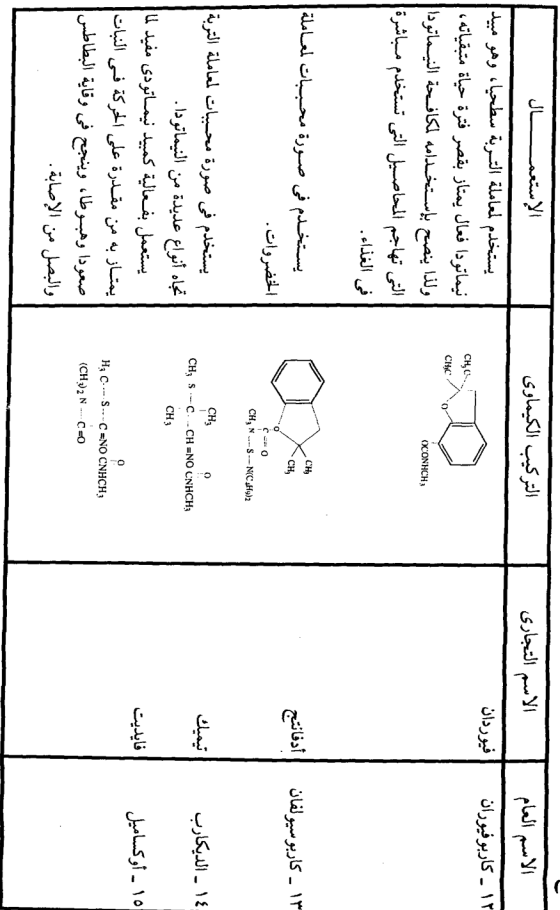 الاسم العام
الاسم التجارى
التركيب الكيماوى
الإستعمـــــــال
١٢ ـ كاربوفيوران
فيوردان
CH₃
CH₃C
O
OCONHCH₃
يستخدم لمعاملة التربة سطحيا، وهو مبيد
نيماتودا فعال يمتاز بقصر فترة حياة متبقياته،
ولذا ينصح بإستخدامه لمكافحة النيماتودا
التى تهاجم المحاصيل التى تستخدم مباشرة
فى الغذاء.
١٣ ـ كاربوسولفان
أدفانتج
CH₃
CH₃
O
C = O
CH₃ N — S — N(C₄H₉)₂
يستخدم فى صورة محببات لمعاملة
الخضروات.
١٤ ـ الديكارب
تيميك
CH₃ O
CH₃ S — C — CH =NO CNHCH₃
CH₃
يستخدم فى صورة محببات لمعاملة التربة
تجاه أنواع عديدة من النيماتودا.
١٥ ـ أوكساميل
فايديت
O
H₃ C — S — C =NO CNHCH₃
(CH₃)₂ N — C =O
يستعمل بفعالية كمبيد نيماتودى مفيد لما
يمتاز به من مقدرة على الحركة فى النبات
صعودا وهبوطا، وينجح فى وقاية البطاطس
والبصل من الإصابة.